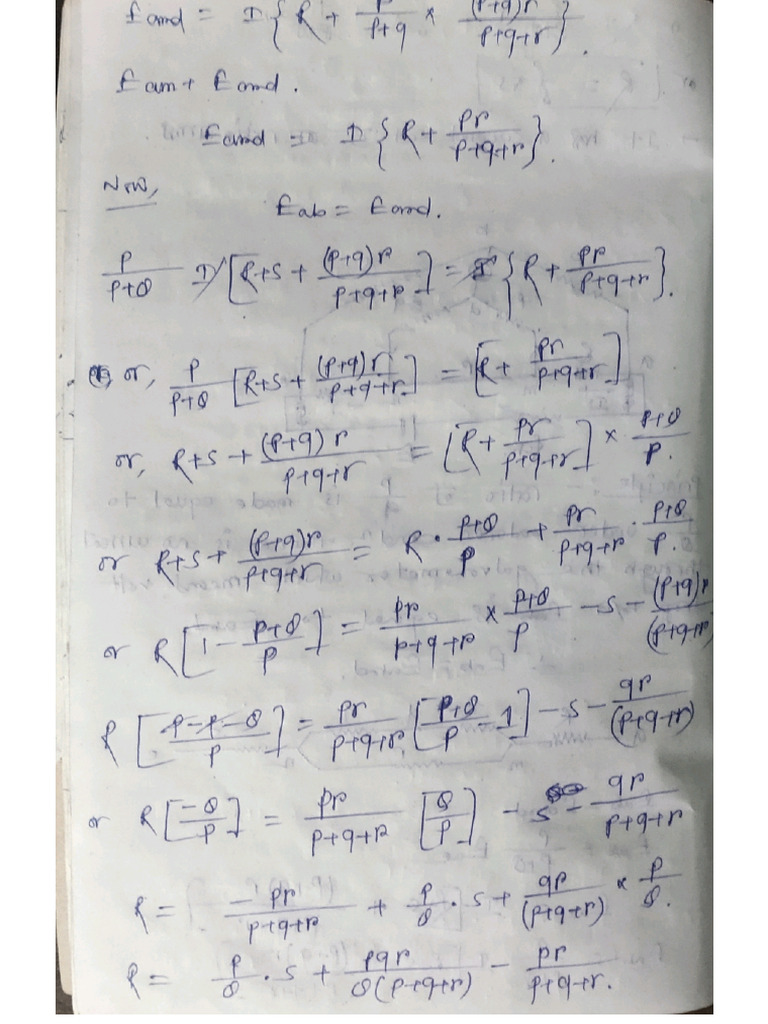 Eamd = I { R + p/p+q × (p+q)r/p+q+r }.
Eam + Eamd.
Eamd = I { R + pr/p+q+r }.
Now,
Eab = Eamd.
P/P+Q I [ R+S + (p+q)r/p+q+r ] = I { R + pr/p+q+r }.
or, P/P+Q [ R+S + (p+q)r/p+q+r ] = [ R + pr/p+q+r ]
or, R+S + (p+q)r/p+q+r = [ R + pr/p+q+r ] × P+Q/P.
or R+S + (p+q)r/p+q+r = R · P+Q/P + pr/p+q+r · P+Q/P.
or R [ 1 - P+Q/P ] = pr/p+q+r × P+Q/P - S - (p+q)r/(p+q+r)
R [ P-P-Q/P ] = pr/p+q+r [ P+Q/P - 1 ] - S - qr/(p+q+r)
or R [ -Q/P ] = pr/p+q+r [ Q/P ] - S - qr/p+q+r
R = -pr/p+q+r + P/Q · S + qr/(p+q+r) × P/Q.
R = P/Q · S + pqr/Q(p+q+r) - pr/p+q+r.